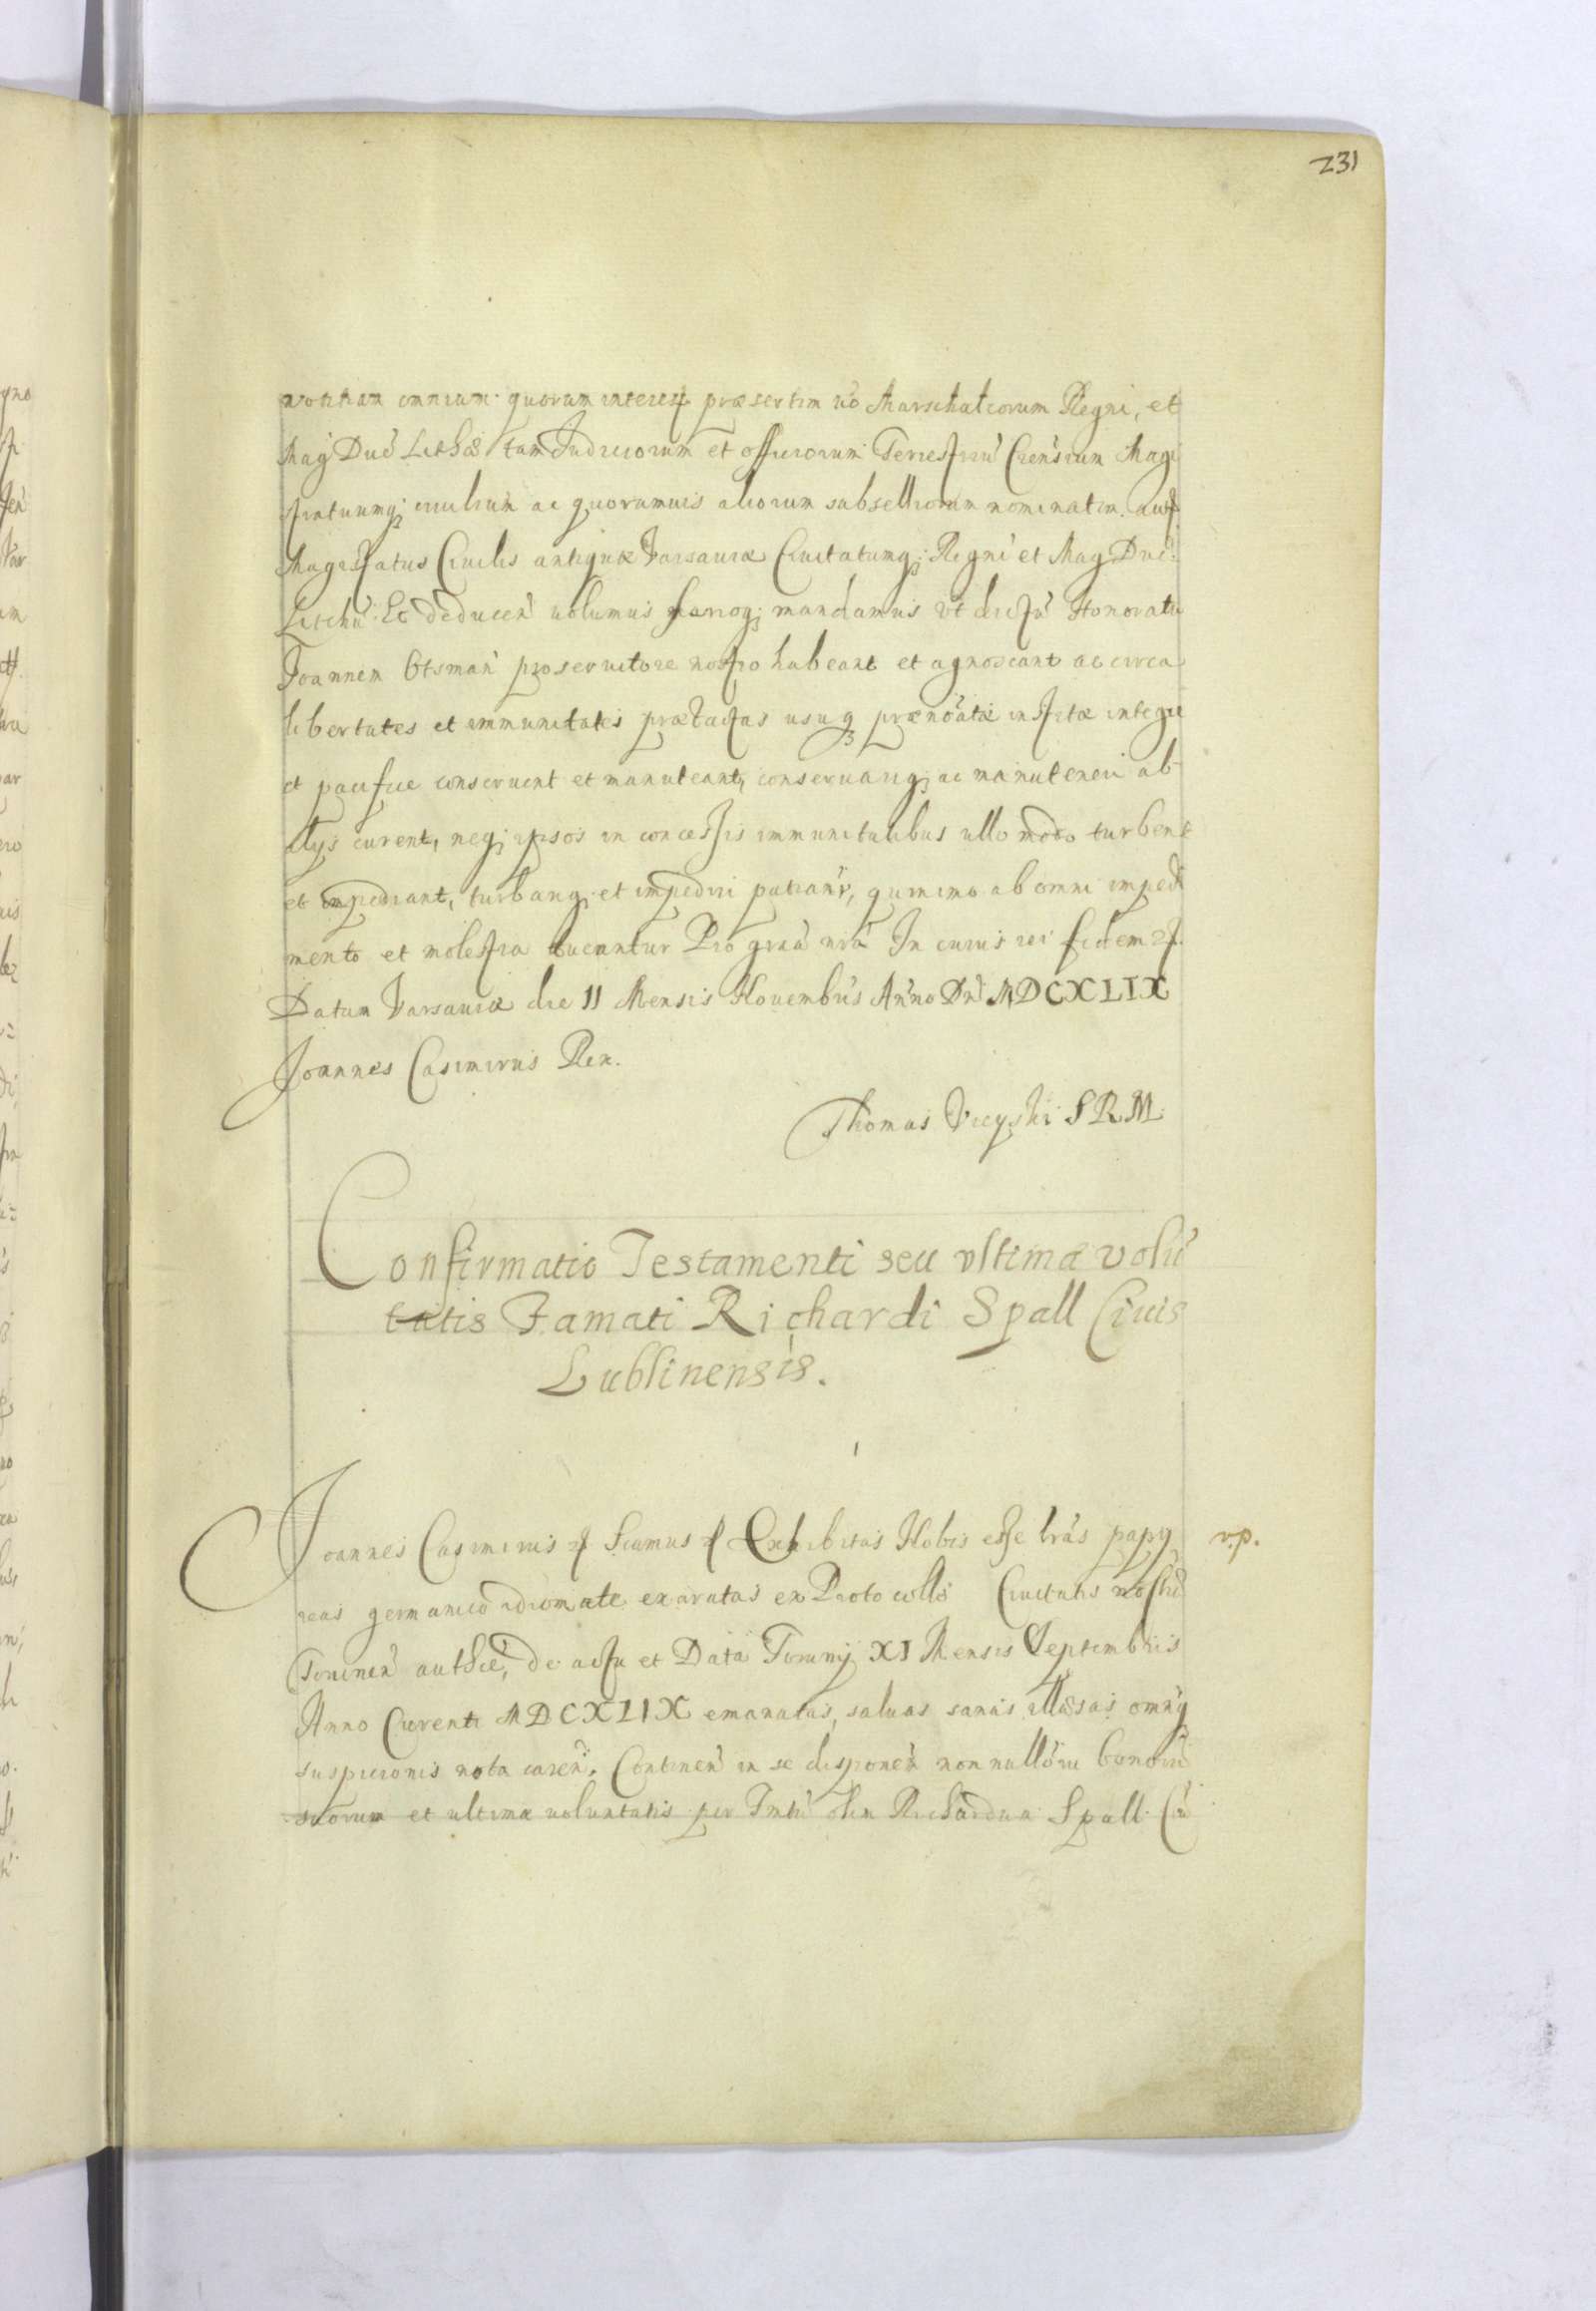 231
notitiam omnium quorum interest præsertim vo Marschalcorum Regni, et
Mag Duc Lithæ tam Judiciorum et officiorum Terrestriu Crensium Magi
stratuumq; civilium ac quorumuis aliorum subselliorum nominatim aut
Magistratus Ciuilis antiquæ Varsauiæ Ciuitatumq; Regni et Mag Duc
Lithu Et deducen uolumus mandamus ut dictu Honoratu
Joannem Otsman pro seruitore nostro habeant et agnoscant ac circa
libertates et immunitates prætactas usuq prænoatæ insticæ integre
et pacifice conseruent et manuteant, conseruariq; ac manuteneri ab
alijs curent, neq; ipsos in concessis immunitatibus ullo modo turbent
et impediant, turbariq; et impediri patiant, quinimo ab omni impedi
mento et molestia tueantur Pro graa nra In cuius rei fidem
Datum Varsauiæ die 11 Mensis Nouembris Anno Dni MDCXLIX
Joannes Casimirus Rex.
Thomas Vieyski SRM
Confirmatio Testamenti seu vltimæ volu
tatis Famati Richardi Spall Ciuis
Lublinensis.
Joannes Casimirus Scimus Exhibitas Nobis esse lras papy
v.p.
reas germanico idiomate exaratas ex Protocollo Ciuitatis nostræ
Torunen authce, de actu et Data Torunij XI Mensis Septembris
Anno Curenti MDCXLIX emanatas, saluas sanas illæsas omnq
suspicionis nota caren. Continen in se disponen non nulloru bonoru
suorum et ultimæ uoluntatis per Fmtu olim Richardum Spall Ciu